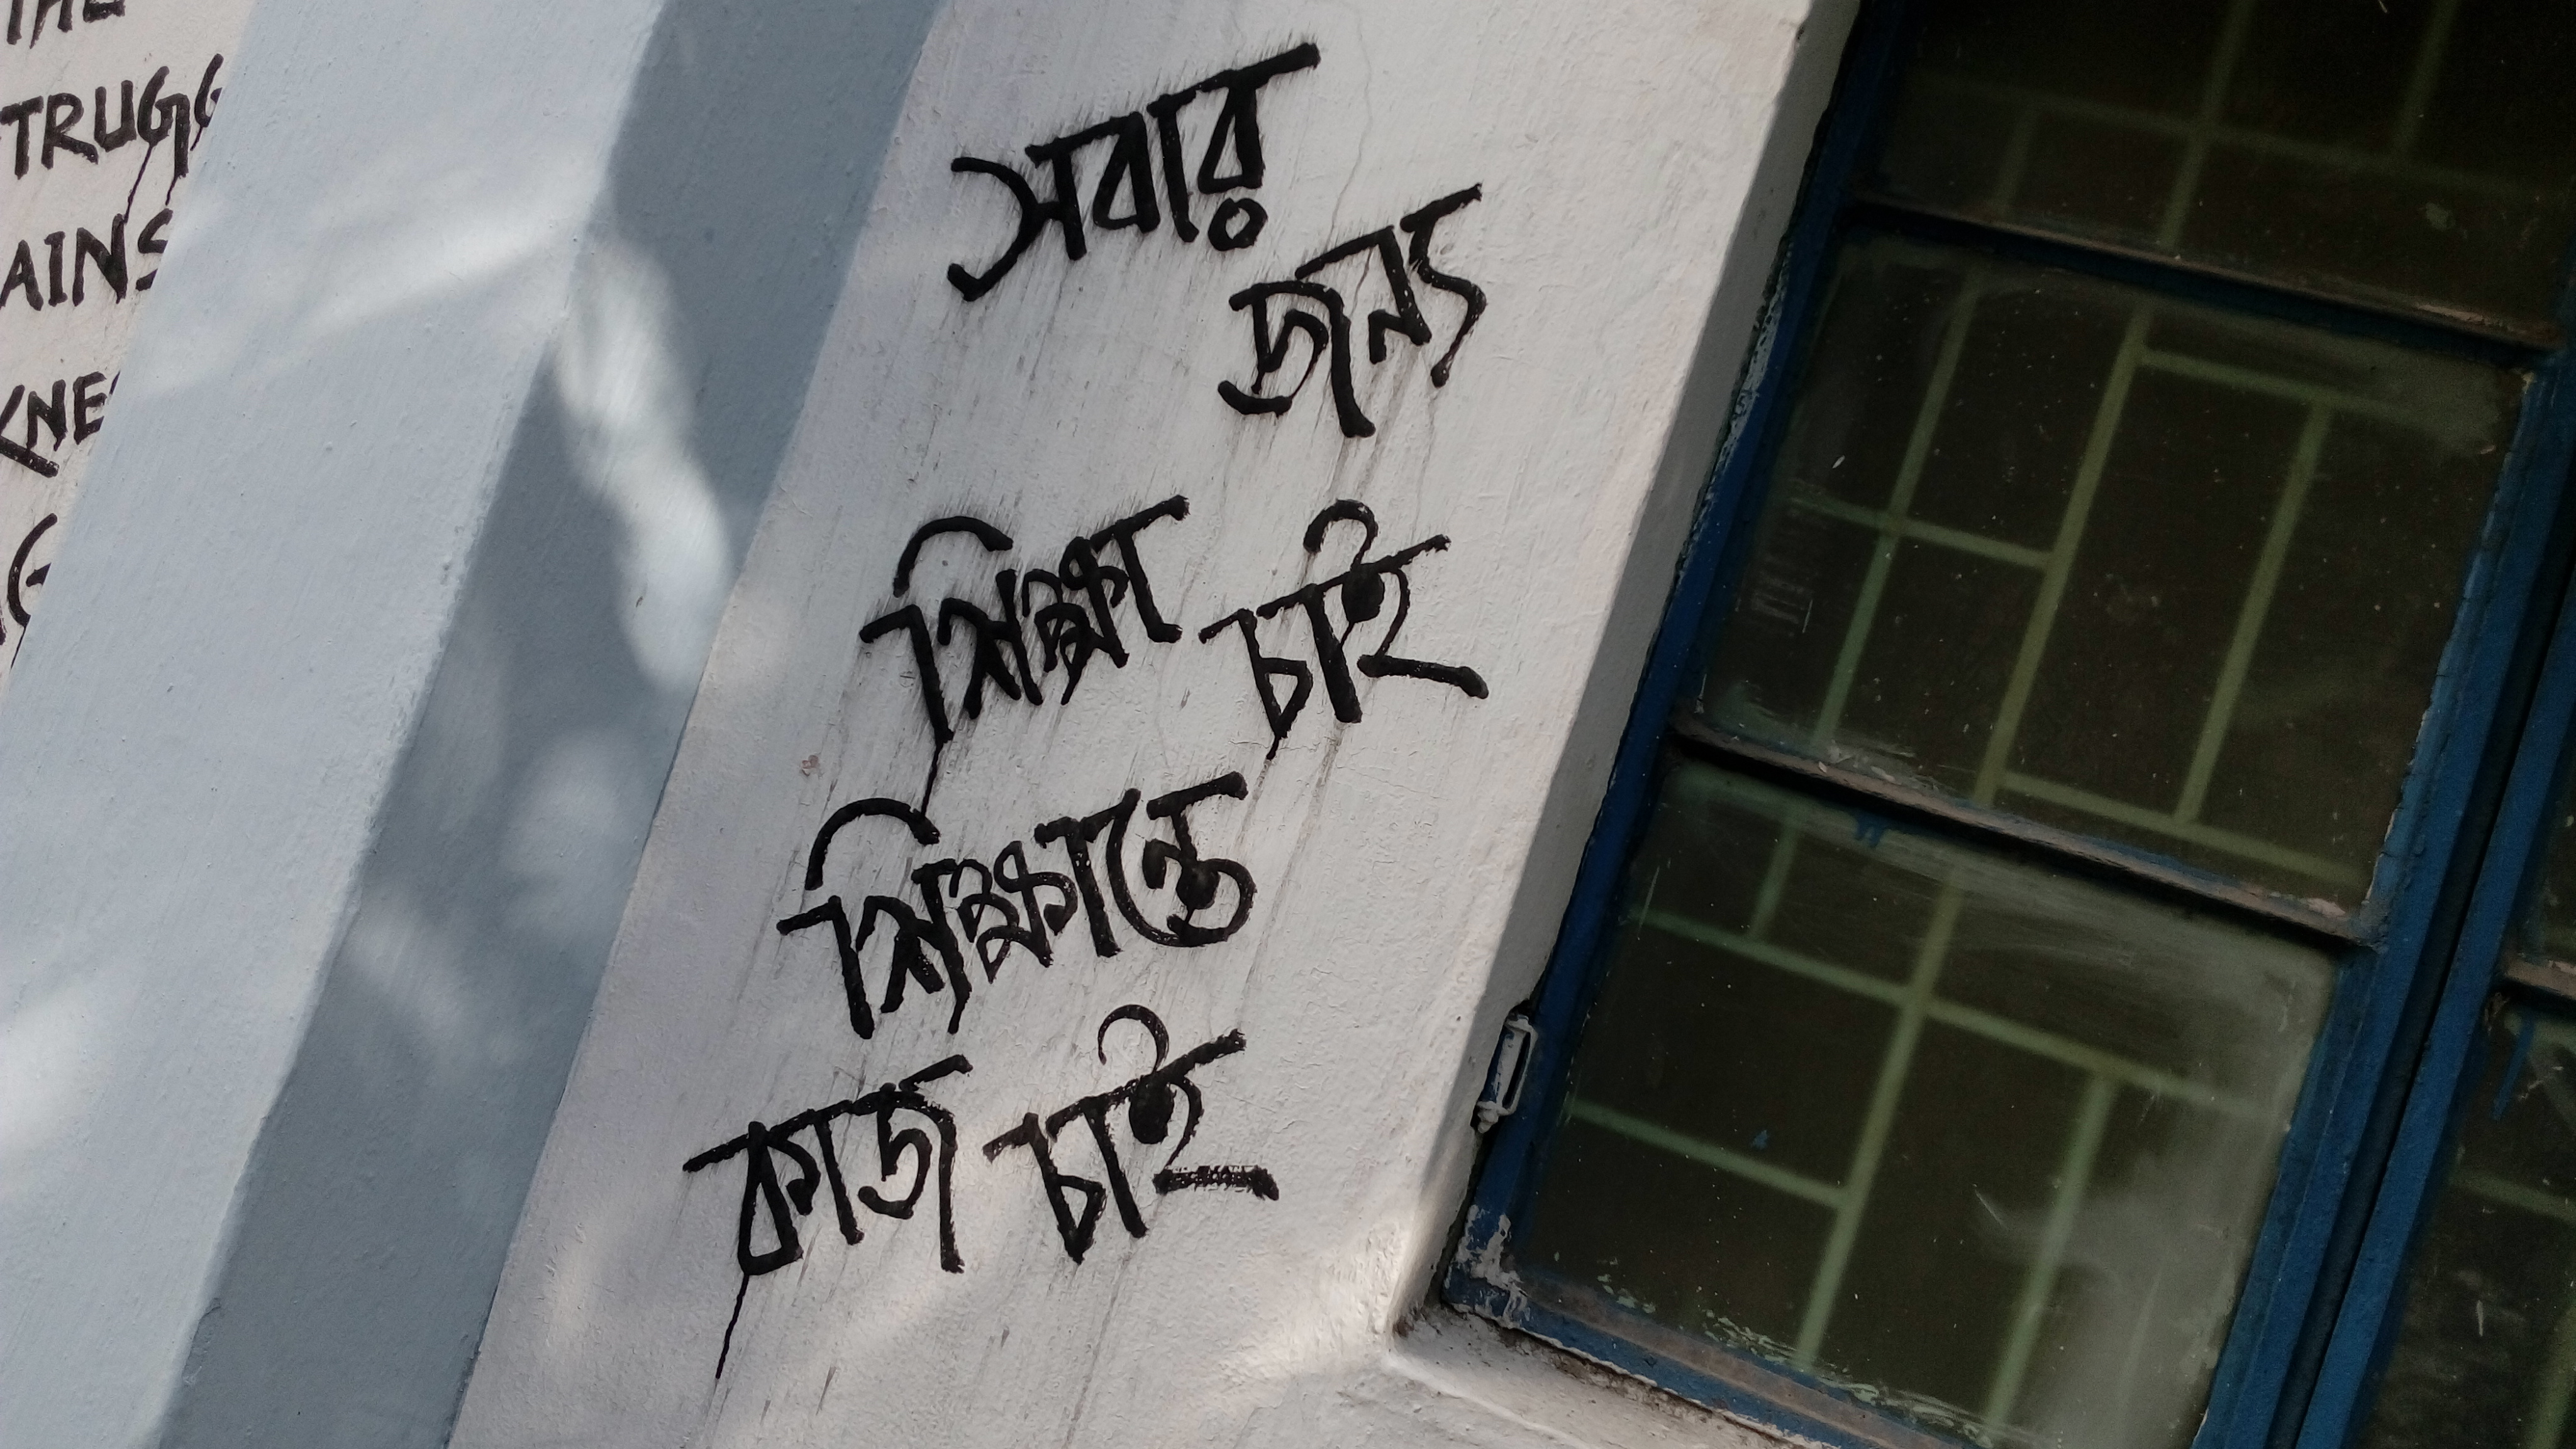 THE
TRUGG
AINS
KNE
G
সবার
জন্য
শিক্ষা চাই
শিক্ষান্তে
কাজ চাই